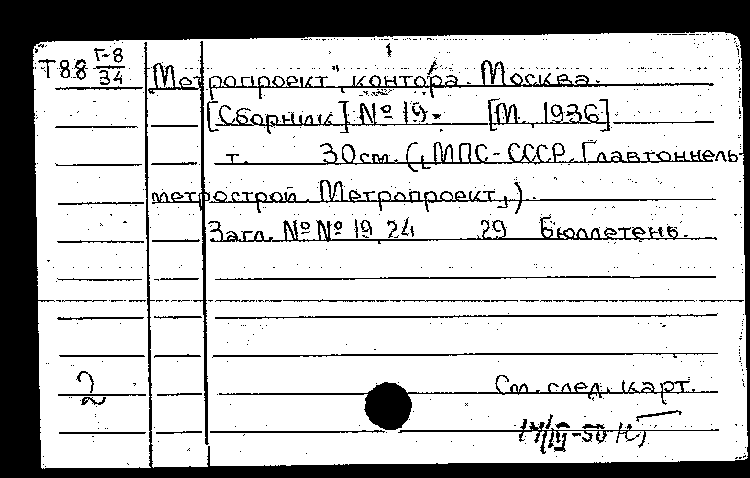 1
Т88 Г-8/34 Метропроект", контора. Москва.
[Сборник] № 19- [М., 1936]
т. 30см. („МПС-СССР. Главтоннель-
метрострой. Метропроект").
Загл. №№ 19, 24 29 Бюллетень.
2 См. след. карт.
14/III-50